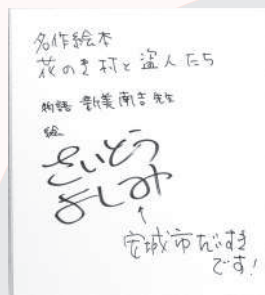 名作絵本
花のき村と盗人たち
物語 新美南吉先生
絵
さいとう
よしみ
↑
安城市だいすき
です!